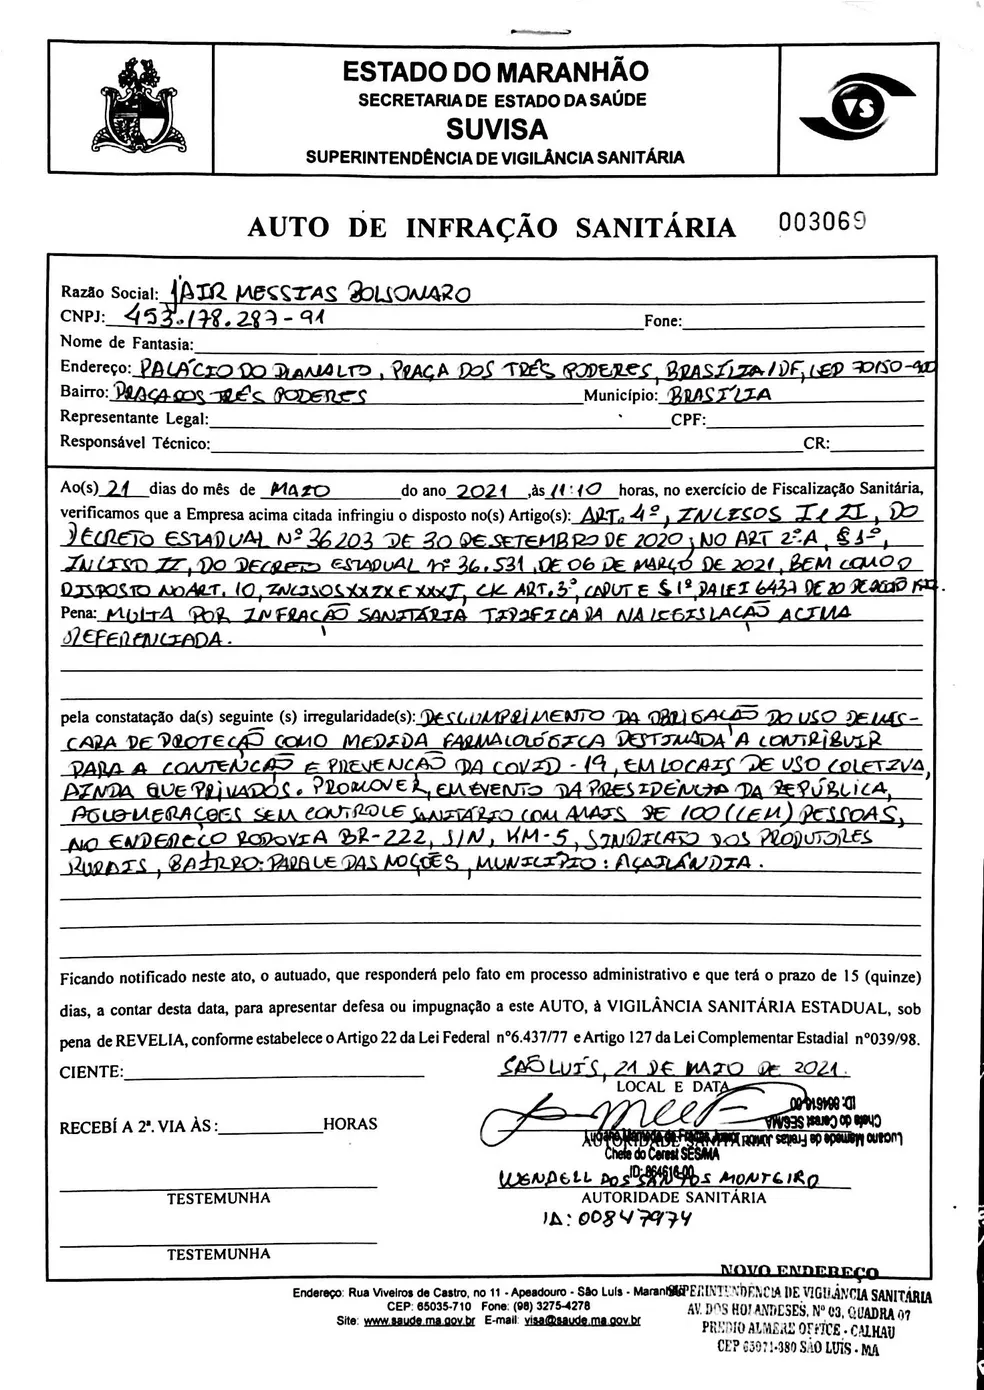 ESTADO DO MARANHÃO
SECRETARIA DE ESTADO DA SAÚDE
SUVISA
SUPERINTENDÊNCIA DE VIGILÂNCIA SANITÁRIA
VS
AUTO DE INFRAÇÃO SANITÁRIA 003069
Razão Social: JAIR MESSIAS BOLSONARO
CNPJ: 453.178.287-91 Fone:
Nome de Fantasia:
Endereço: PALÁCIO DO PLANALTO, PRAÇA DOS TRÊS PODERES, BRASÍLIA/DF, CEP 70150-900
Bairro: PRAÇA DOS TRÊS PODERES Município: BRASÍLIA
Representante Legal: CPF:
Responsável Técnico: CR:
Ao(s) 21 dias do mês de MAIO do ano 2021 ,às 11:10 horas, no exercício de Fiscalização Sanitária,
verificamos que a Empresa acima citada infringiu o disposto no(s) Artigo(s): ART. 4º, INCISOS I e II, DO
DECRETO ESTADUAL Nº 36203 DE 30 DE SETEMBRO DE 2020; NO ART 2º-A, § 1º,
INCISO II, DO DECRETO ESTADUAL nº 36.531, DE 06 DE MARÇO DE 2021, BEM COMO O
DISPOSTO NO ART. 10, INCISOS XXIX E XXXI, C/C ART. 3º, CAPUT E § 1º, DA LEI 6437 DE 20 DE AGOSTO
Pena: MULTA POR INFRAÇÃO SANITÁRIA TIPIFICADA NA LEGISLAÇÃO ACIMA
REFERENCIADA.
pela constatação da(s) seguinte (s) irregularidade(s): DESCUMPRIMENTO DA OBRIGAÇÃO DO USO DE MÁS-
CARA DE PROTEÇÃO COMO MEDIDA FARMACOLÓGICA DESTINADA A CONTRIBUIR
PARA A CONTENÇÃO E PREVENÇÃO DA COVID-19, EM LOCAIS DE USO COLETIVO,
AINDA QUE PRIVADOS. PROMOVER, EM EVENTO DA PRESIDÊNCIA DA REPÚBLICA,
AGLOMERAÇÕES SEM CONTROLE SANITÁRIO COM MAIS DE 100 (CEM) PESSOAS,
NO ENDEREÇO RODOVIA BR-222, S/N, KM-5, SINDICATO DOS PRODUTORES
RURAIS, BAIRRO: PARQUE DAS NAÇÕES, MUNICÍPIO: AÇAILÂNDIA.
Ficando notificado neste ato, o autuado, que responderá pelo fato em processo administrativo e que terá o prazo de 15 (quinze)
dias, a contar desta data, para apresentar defesa ou impugnação a este AUTO, à VIGILÂNCIA SANITÁRIA ESTADUAL, sob
pena de REVELIA, conforme estabelece o Artigo 22 da Lei Federal nº6.437/77 e Artigo 127 da Lei Complementar Estadial nº039/98.
CIENTE: SÃO LUÍS, 21 DE MAIO DE 2021.
LOCAL E DATA
RECEBÍ A 2ª. VIA ÀS: HORAS
AUTORIDADE SANITÁRIA
Luciano Mamede de Freitas Junior
Chefe do Cerest SES/MA
ID: 864616-00
Luciano Mamede de Freitas Junior
Chefe do Cerest SES/MA
ID: 864616-00
WENDELL DOS SANTOS MONTEIRO
TESTEMUNHA AUTORIDADE SANITÁRIA
ID: 00847974
TESTEMUNHA
Endereço: Rua Viveiros de Castro, no 11 - Apeadouro - São Luís - Maranhão
CEP: 65035-710 Fone: (98) 3275-4278
Site: www.saude.ma.gov.br E-mail: visa@saude.ma.gov.br
NOVO ENDEREÇO
SUPERINTENDÊNCIA DE VIGILÂNCIA SANITÁRIA
AV. DOS HOLANDESES, Nº 03, QUADRA 07
PRÉDIO ALMERE OFFICE - CALHAU
CEP 65071-380 SÃO LUÍS - MA